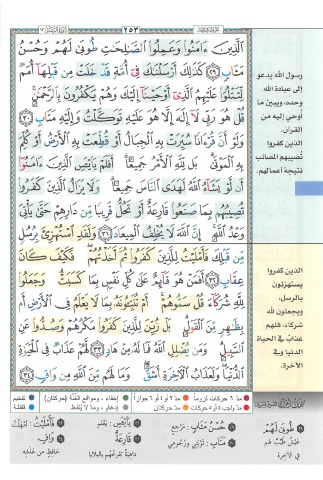 ٢٥٣
ٱلَّذِينَ ءَامَنُوا۟ وَعَمِلُوا۟ ٱلصَّـٰلِحَـٰتِ طُوبَىٰ لَهُمْ وَحُسْنُ
مَـَٔابٍ ٢٩ كَذَٰلِكَ أَرْسَلْنَـٰكَ فِىٓ أُمَّةٍ قَدْ خَلَتْ مِن قَبْلِهَآ أُمَمٌ
لِّتَتْلُوَا۟ عَلَيْهِمُ ٱلَّذِىٓ أَوْحَيْنَآ إِلَيْكَ وَهُمْ يَكْفُرُونَ بِٱلرَّحْمَـٰنِ
قُلْ هُوَ رَبِّى لَآ إِلَـٰهَ إِلَّا هُوَ عَلَيْهِ تَوَكَّلْتُ وَإِلَيْهِ مَتَابِ ٣٠
وَلَوْ أَنَّ قُرْءَانًا سُيِّرَتْ بِهِ ٱلْجِبَالُ أَوْ قُطِّعَتْ بِهِ ٱلْأَرْضُ أَوْ كُلِّمَ
بِهِ ٱلْمَوْتَىٰ بَل لِّلَّهِ ٱلْأَمْرُ جَمِيعًا أَفَلَمْ يَا۟يْـَٔسِ ٱلَّذِينَ ءَامَنُوٓا۟
أَن لَّوْ يَشَآءُ ٱللَّهُ لَهَدَى ٱلنَّاسَ جَمِيعًا وَلَا يَزَالُ ٱلَّذِينَ كَفَرُوا۟
تُصِيبُهُم بِمَا صَنَعُوا۟ قَارِعَةٌ أَوْ تَحُلُّ قَرِيبًا مِّن دَارِهِمْ حَتَّىٰ يَأْتِىَ
وَعْدُ ٱللَّهِ إِنَّ ٱللَّهَ لَا يُخْلِفُ ٱلْمِيعَادَ ٣١ وَلَقَدِ ٱسْتُهْزِئَ بِرُسُلٍ
مِّن قَبْلِكَ فَأَمْلَيْتُ لِلَّذِينَ كَفَرُوا۟ ثُمَّ أَخَذْتُهُمْ فَكَيْفَ كَانَ
عِقَابِ ٣٢ أَفَمَنْ هُوَ قَآئِمٌ عَلَىٰ كُلِّ نَفْسٍۭ بِمَا كَسَبَتْ وَجَعَلُوا۟
لِلَّهِ شُرَكَآءَ قُلْ سَمُّوهُمْ أَمْ تُنَبِّـُٔونَهُۥ بِمَا لَا يَعْلَمُ فِى ٱلْأَرْضِ أَم
بِظَـٰهِرٍ مِّنَ ٱلْقَوْلِ بَلْ زُيِّنَ لِلَّذِينَ كَفَرُوا۟ مَكْرُهُمْ وَصُدُّوا۟ عَنِ
ٱلسَّبِيلِ وَمَن يُضْلِلِ ٱللَّهُ فَمَا لَهُۥ مِنْ هَادٍ ٣٣ لَّهُمْ عَذَابٌ فِى ٱلْحَيَوٰةِ
ٱلدُّنْيَا وَلَعَذَابُ ٱلْـَٔاخِرَةِ أَشَقُّ وَمَا لَهُم مِّنَ ٱللَّهِ مِن وَاقٍ ٣٤
رسول الله يدعو
إلى عبادة الله
وحده، ويبين ما
أوحي إليه من
القرآن.
الذين كفروا
تصيبهم المصائب
نتيجة أعمالهم.
الذين كفروا
يستهزئون
بالرسل،
ويجعلون لله
شركاء، فلهم
عذاب في الحياة
الدنيا وفي
الآخرة.
مد ٦ حركات لزوماً
مد ٢ أو ٤ أو ٦ جوازاً
إخفاء، ومواقع الغُنَّة (حركتان)
تفخيم
مد واجب ٤ أو ٥ حركات
مد حركتان
إدغام، وما لا يُلفظ
قلقلة
طُوبَى لَهُمْ
في الآخرة
حُسْنُ مَآبٍ: مَرْجِع
مَتَابِ: تَوْبَتي وَرُجُوعي
قَارِعَةٌ
دَاهِيَةٌ تَقْرَعُهُم بِالبَلايا
وَاقٍ